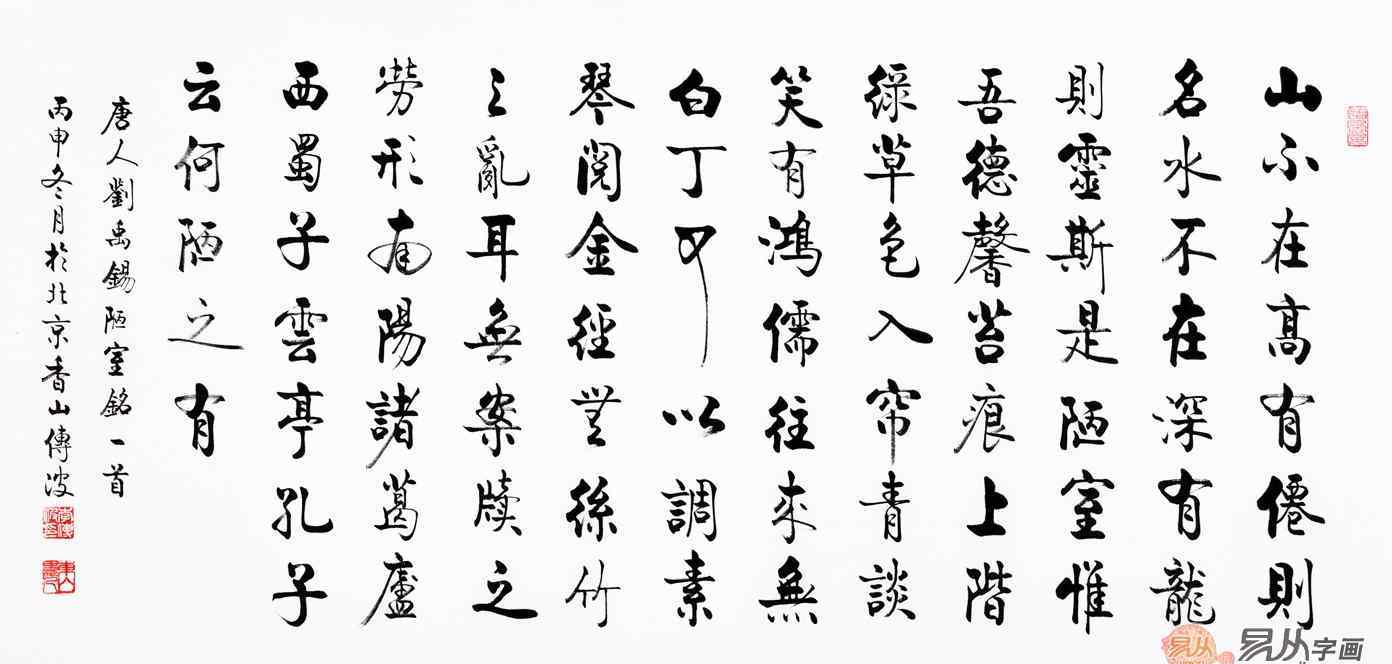 山不在高有僊則
名水不在深有龍
則靈斯是陋室惟
吾德馨苔痕上階
綠草色入帘青談
笑有鴻儒往來無
白丁可以調素
琴閱金經無絲竹
之亂耳無案牘之
勞形南陽諸葛廬
西蜀子雲亭孔子
云何陋之有
唐人劉禹錫陋室銘一首
丙申冬月於北京香山傳波
易从字画